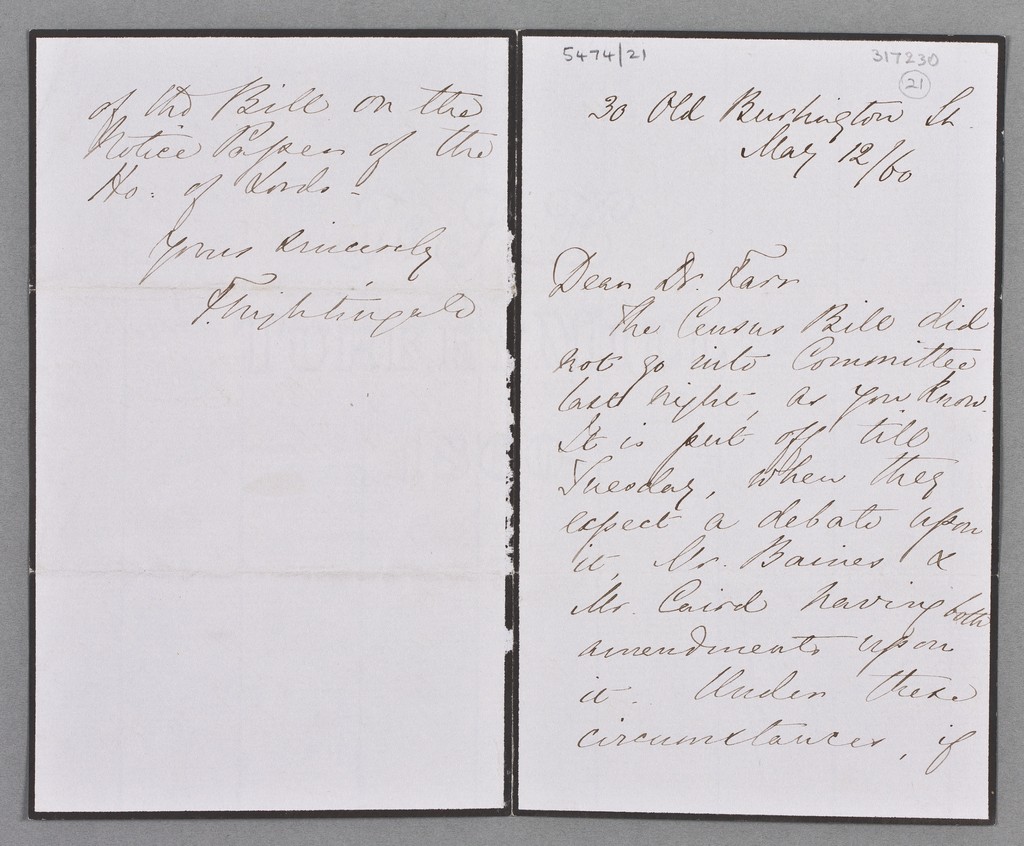 5474/21
317230
21
30 Old Burlington St.
May 12/60
Dear Dr. Farr
The Census Bill did
not go into Committee
last night, as you know.
It is put off till
Tuesday, when they
expect a debate upon
it, Mr. Baines &
Mr. Caird having both
amendments upon
it. Under these
circumstances, if
of the Bill on the
Notice Paper of the
Ho: of Lords -
Yours sincerely
F. Nightingale